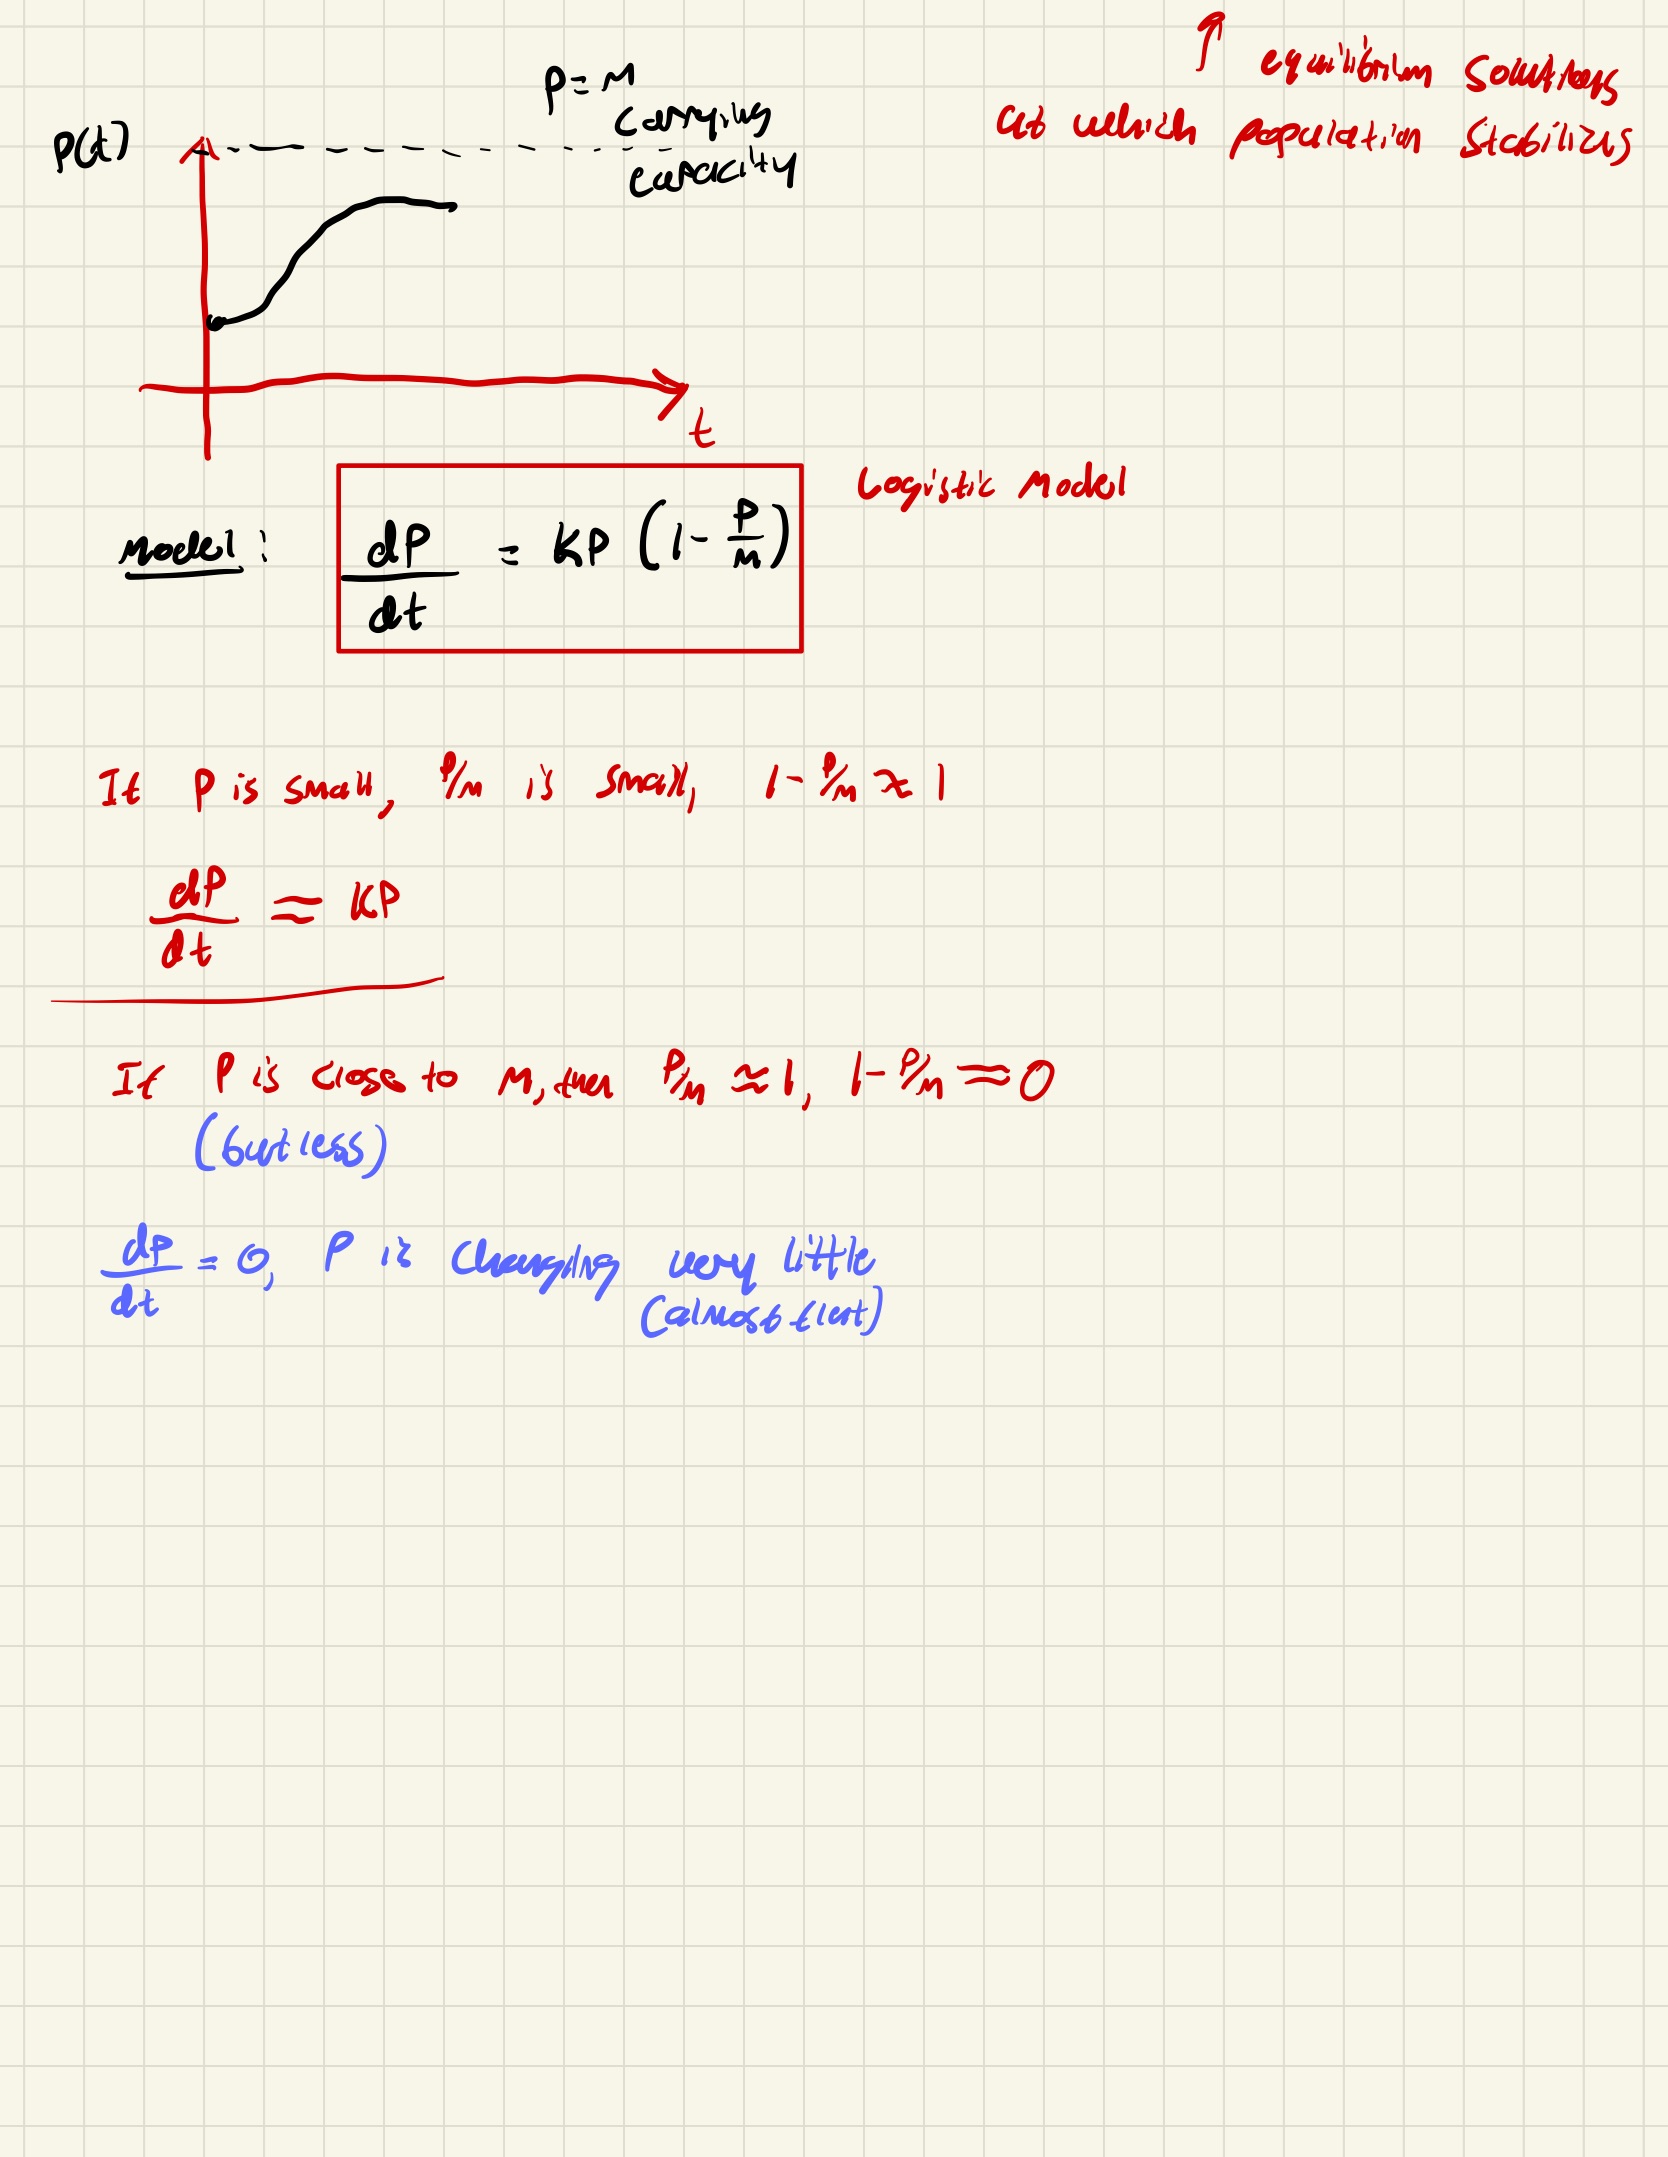 equilibrium solutions
at which population stabilizes
P(t)
P = M
carrying
capacity
t
Logistic Model
Model:
dP/dt = KP (1 - P/M)
If P is small, P/M is small, 1 - P/M ≈ 1
dP/dt ≈ KP
If P is close to M, then P/M ≈ 1, 1 - P/M ≈ 0
(but less)
dP/dt = 0, P is changing very little
(almost flat)